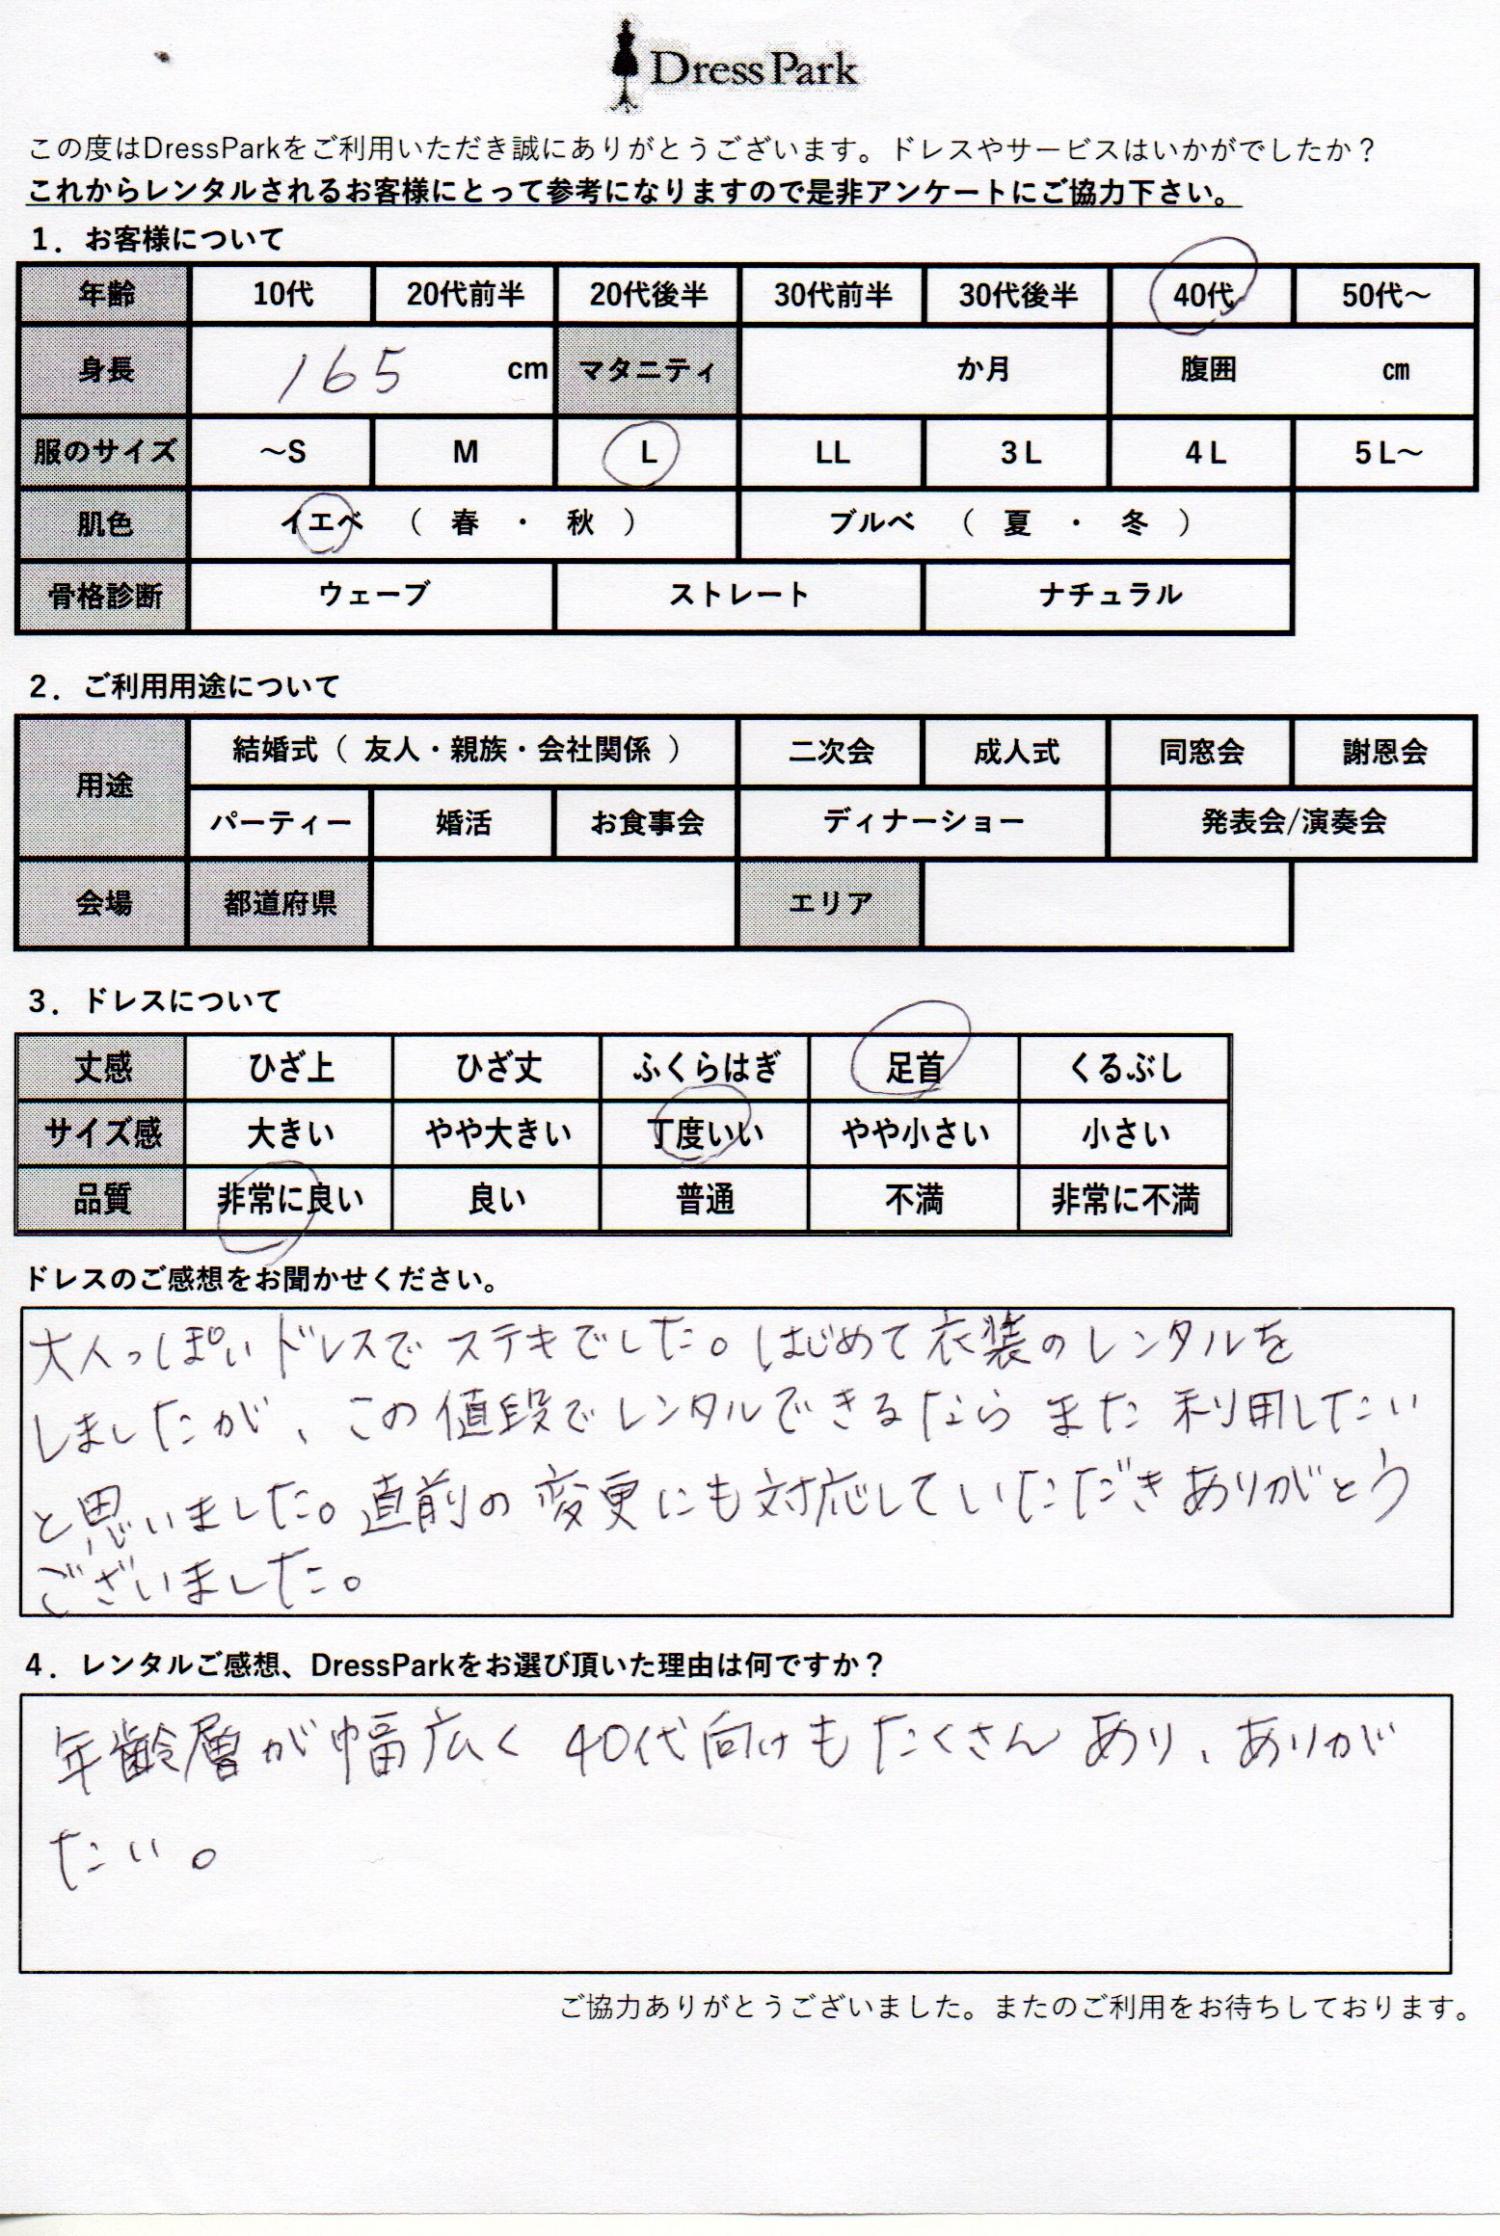 Dress Park
この度はDressParkをご利用いただき誠にありがとうございます。ドレスやサービスはいかがでしたか？
これからレンタルされるお客様にとって参考になりますので是非アンケートにご協力下さい。
１．お客様について
年齢 10代 20代前半 20代後半 30代前半 30代後半 40代 50代～
身長 165 cm マタニティ か月 腹囲 ㎝
服のサイズ ～S M L LL ３L ４L ５L～
肌色 イエベ （ 春 ・ 秋 ） ブルベ （ 夏 ・ 冬 ）
骨格診断 ウェーブ ストレート ナチュラル
２．ご利用用途について
用途 結婚式（ 友人・親族・会社関係 ） 二次会 成人式 同窓会 謝恩会
パーティー 婚活 お食事会 ディナーショー 発表会/演奏会
会場 都道府県 エリア
３．ドレスについて
丈感 ひざ上 ひざ丈 ふくらはぎ 足首 くるぶし
サイズ感 大きい やや大きい 丁度いい やや小さい 小さい
品質 非常に良い 良い 普通 不満 非常に不満
ドレスのご感想をお聞かせください。
大人っぽいドレスでステキでした。はじめて衣装のレンタルを
しましたが、この値段でレンタルできるならまた利用したい
と思いました。直前の変更にも対応していただきありがとう
ございました。
４．レンタルご感想、DressParkをお選び頂いた理由は何ですか？
年齢層が幅広く40代向けもたくさんあり、ありが
たい。
ご協力ありがとうございました。またのご利用をお待ちしております。